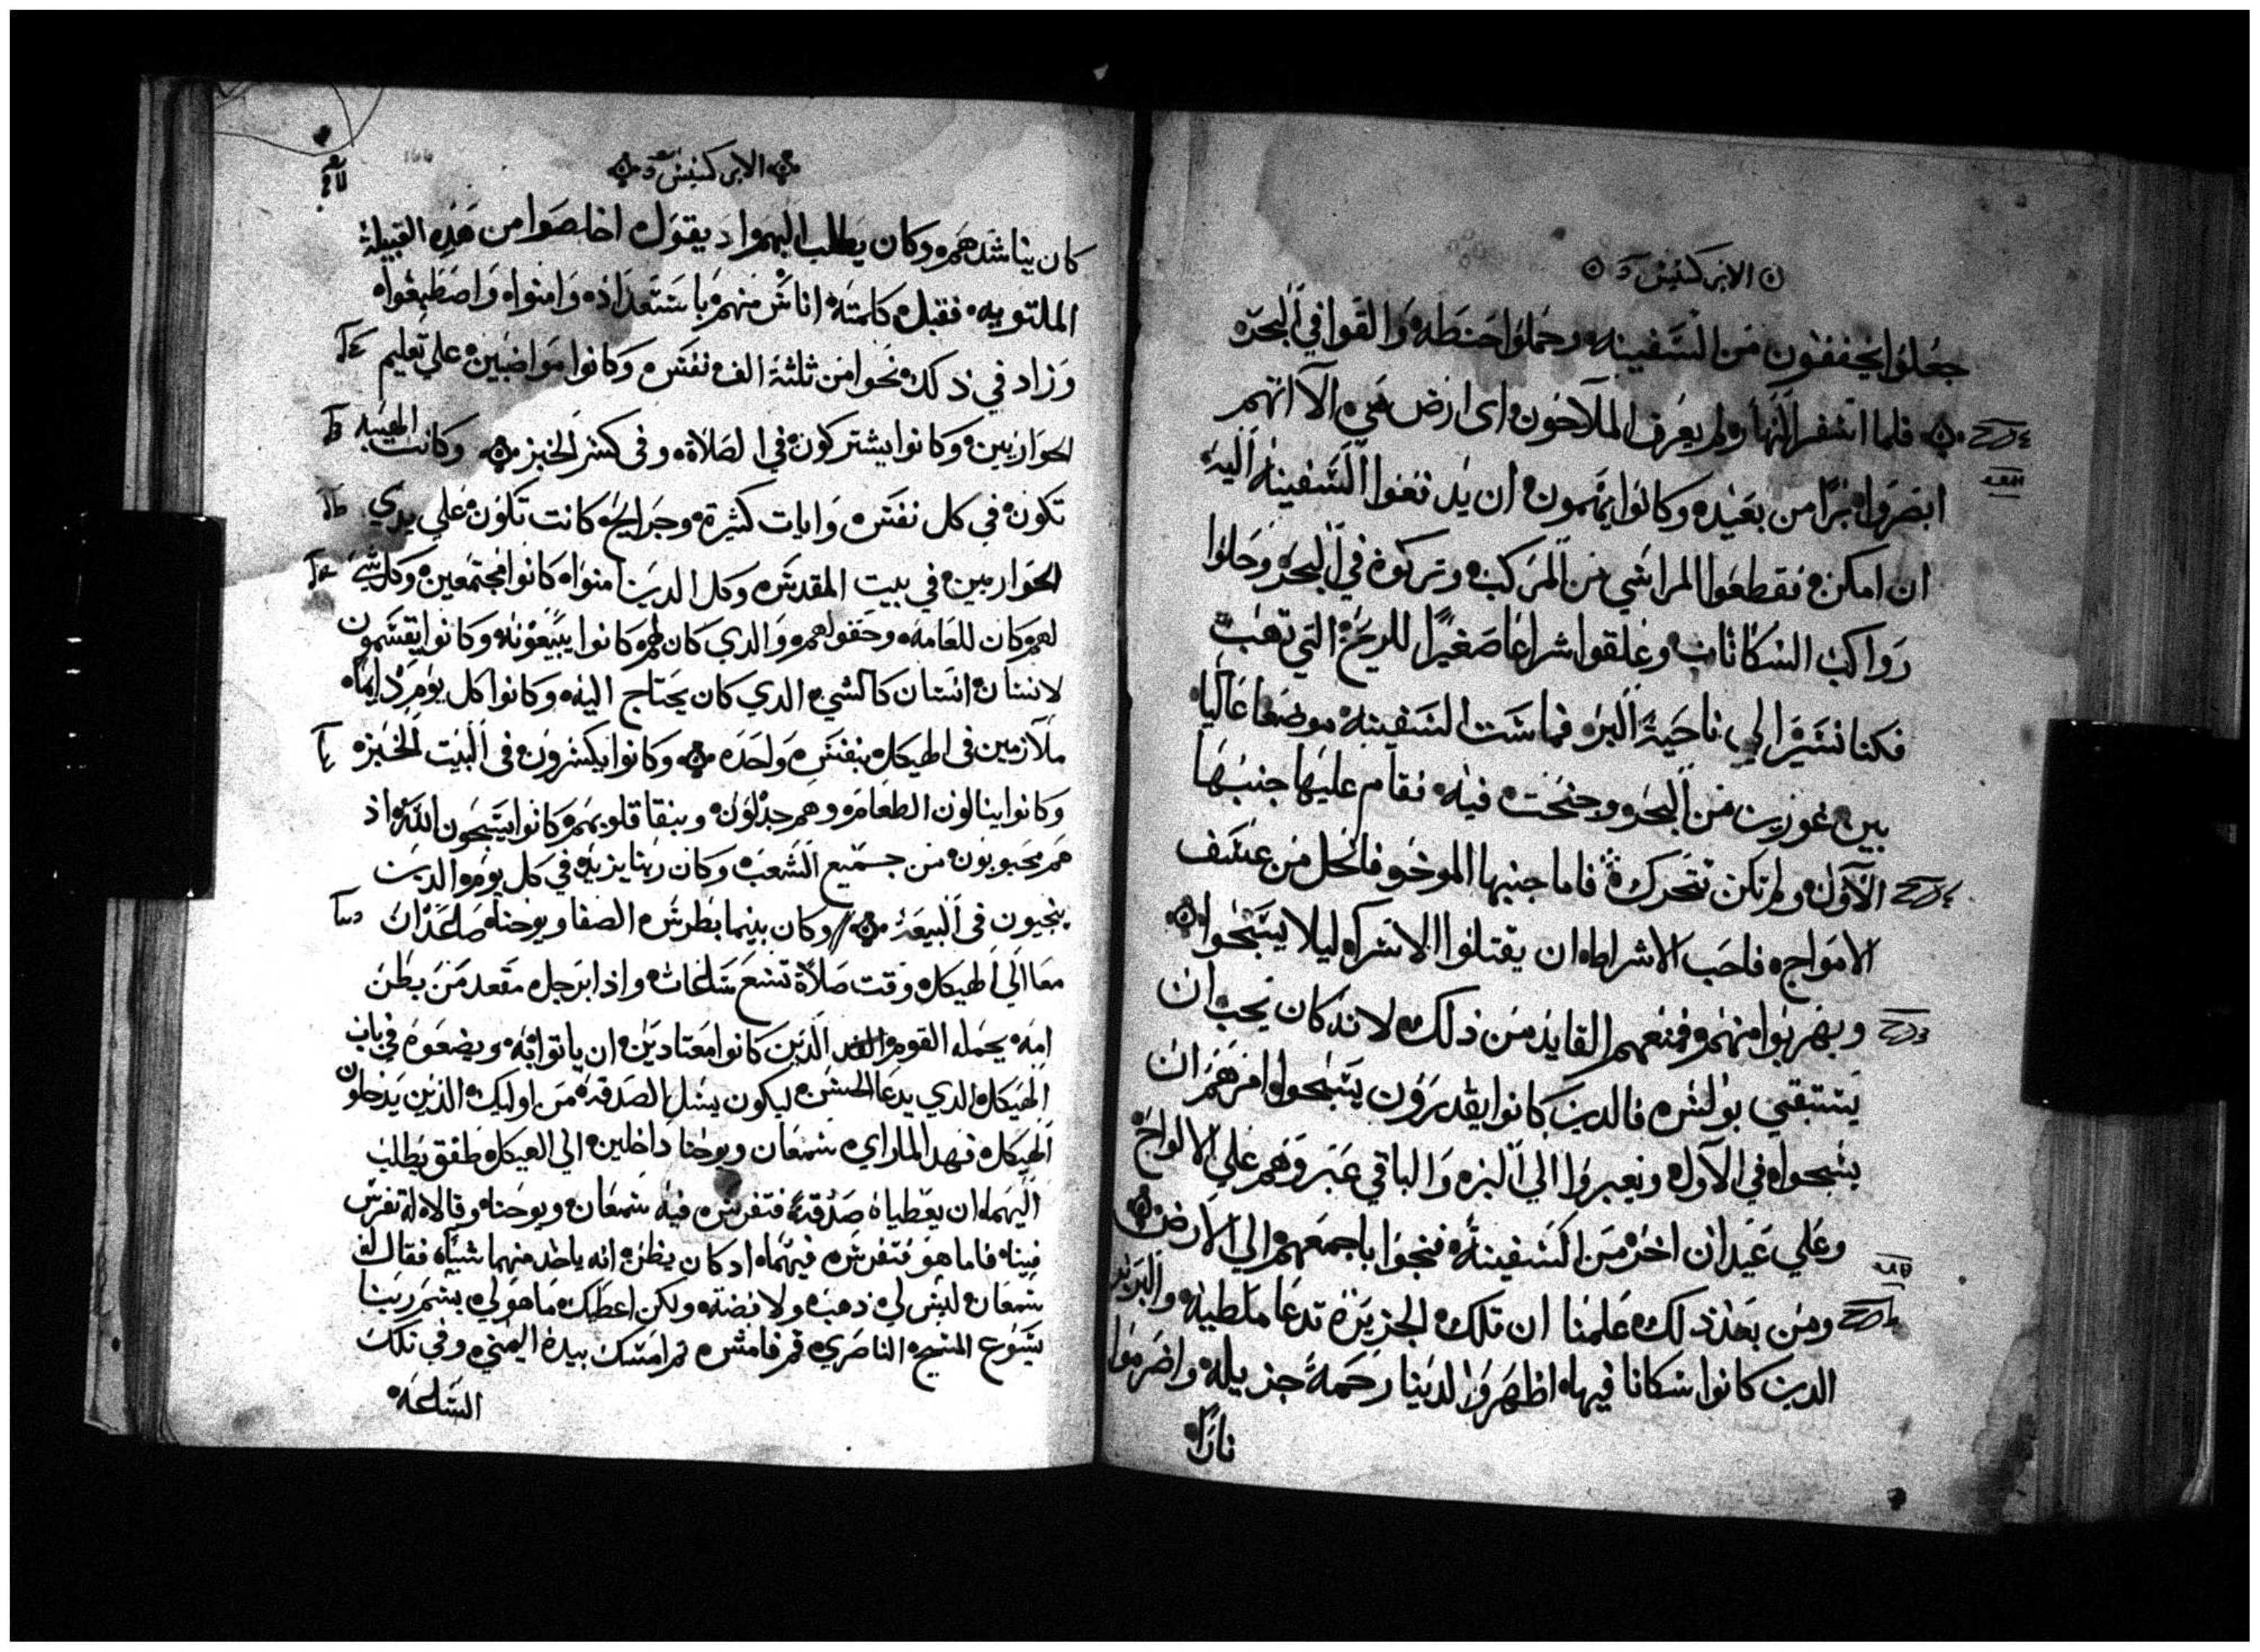 الابركسيس
جعلوا يخففون من السفينه وحملوا حنطه والقوا في البحر
فلما اسفر النهار ولم يعرف الملاحون اى ارض هي الا انهم
ابصروا برا من بعيد وكانوا يهمون ان يدفعوا السفينه اليه
ان امكن فقطعوا المراسي من المركب وتركوه في البحر وحلوا
رواكب السكانات وعلقوا شراعا صغيرا للريح التي تهب
فكنا نسير الي ناحية البر فماست السفينه موضعا عاليا
بين غورين من البحر وجنحت فيه فقام عليها جنبها
الاول ولم تكن تتحرك فاما جنبها الموخر فانحل من عسف
الامواج فاحب الاشراط ان يقتلوا الاسرا ليلا يسبحوا
ويهربوا منهم فمنعهم القايد من ذلك لانه كان يحب ان
يستبقي بولس فالدين كانوا يقدرون يسبحوا امرهم ان
يسبحوا في الاول ويعبروا الي البر والباقي عبروهم علي الالواح
وعلي عيدان اخر من السفينه فنجوا باجمعهم الي الارض
ومن بعد ذلك علمنا ان تلك الجزيره تدعا ملطيه والبربر
الدين كانوا سكانا فيها اظهروا لدينا رحمة جزيله واضرموا
نارا
الابركسيس
كان يناشدهم وكان يطلب اليهم اد يقول اخلصوا من هذه القبيلة
الملتويه فقبل كلمته اناس منهم باستعداد وامنوا واصطبغوا
وزاد في ذلك نحوا من ثلثة الف نفس وكانوا مواضبين علي تعليم
الحواريين وكانوا يشتركون في الصلاة وفى كسر الخبز وكانت الهيبه
تكون في كل نفس وايات كثيرة وجرايح كانت تكون علي يدي
الحواريين في بيت المقدس وكل الدين امنوا كانوا مجتمعين وكل شي
لهم كان للعامه وحقولهم والدي كان لهم كانوا يبيعونه وكانوا يقسمون
لانسان انسان كالشي الدي كان يحتاج اليه وكانوا كل يوم دايما
ملازمين فى الهيكل بنفس واحده وكانوا يكسرون فى البيت الخبز
وكانوا ينالون الطعام وهم جدلون وبنقا قلوبهم كانوا يسبحون الله اذ
هم محبوبون من جميع الشعب وكان ربنا يزيد في كل يوم الدين
ينجيون فى البيعة وكان بينما بطرس الصفا ويوحنا صاعدان
معا الي الهيكل وقت صلاة تسع ساعات واذا برجل مقعد من بطن
امه يحمله القوم الدين كانوا معتادين ان ياتوا به ويضعوه في باب
الهيكل الدي يدعا الحسن ليكون يسل الصدقه من اوليك الذين يدخلون
الهيكل فهدا لما راي شمعان ويوحنا داخلين الي الهيكل طفق يطلب
اليهما ان يعطياه صدقة فتفرس فيه شمعان ويوحنا وقالا له تفرس
فينا فاما هو فتفرس فيهما اد كان يظن انه ياخد منهما شيا فقال له
شمعان ليس لي ذهب ولا فضه ولكن اعطك ما هو لي بسم ربنا
يسوع المسيح الناصري قم فامش ثم امسك بيده اليمني وفي تلك
الساعه